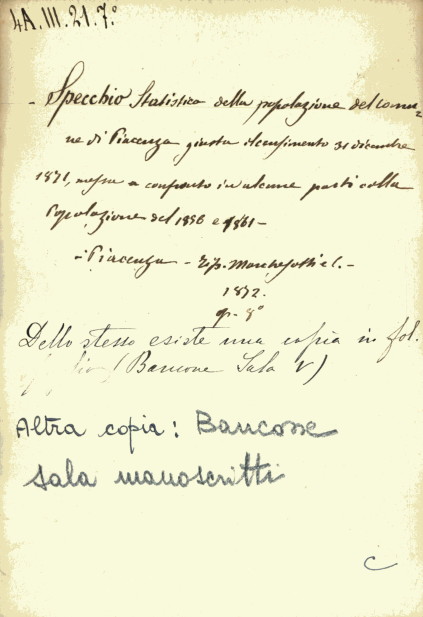 4A.III.21.7.°
- Specchio Statistico della popolazione del comu=
ne di Piacenza giusta il censimento 31 dicembre
1871, messa a confronto in alcune parti colla
Popolazione del 1856 e 1861 -
- Piacenza - Tip. Marchesotti e C. -
1872.
gr. 8°
Dello stesso esiste una copia in fol.
(Bancone Sala V)
Altra copia: Bancone
sala manoscritti
C